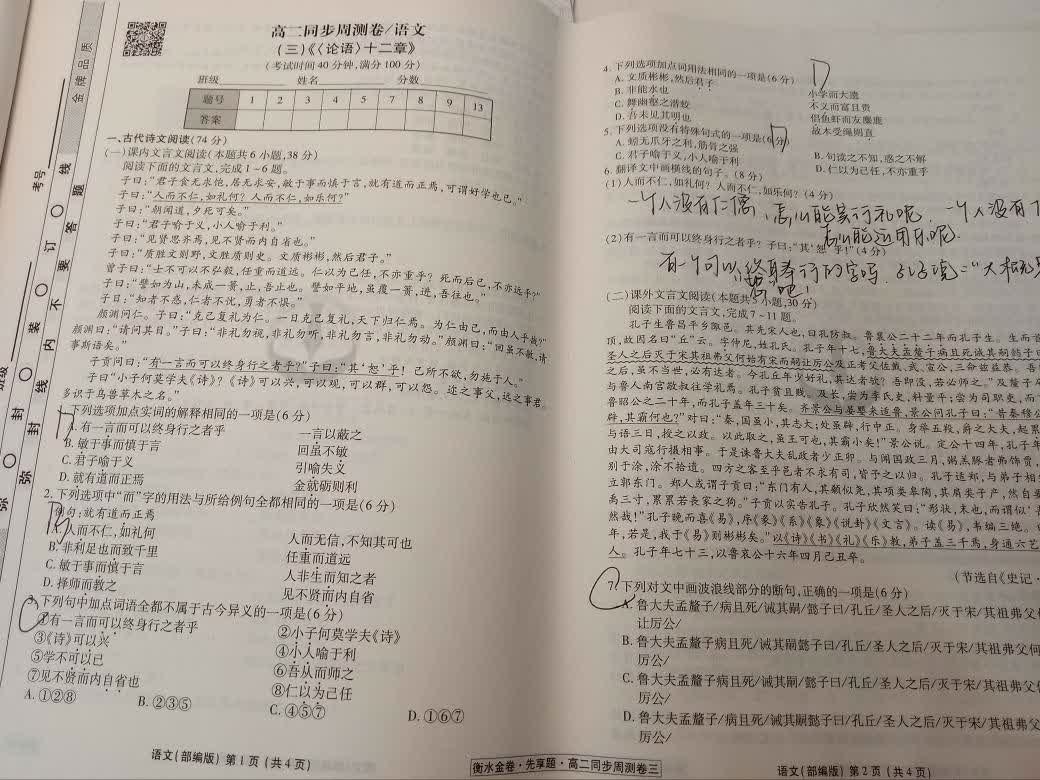 金牌品质
考号
班级
弥 封 装 订 线
弥 封 线 内 不 要 答 题
高二同步周测卷/语文
(三)《〈论语〉十二章》
(考试时间40分钟,满分100分)
班级 姓名 分数
题号 1 2 3 4 5 6 7 8 9 13
答案
一、古代诗文阅读(74分)
(一)课内文言文阅读(本题共6小题,38分)
阅读下面的文言文,完成1~6题。
子曰:“君子食无求饱,居无求安,敏于事而慎于言,就有道而正焉,可谓好学也已。”
子曰:“人而不仁,如礼何?人而不仁,如乐何?”
子曰:“朝闻道,夕死可矣。”
子曰:“君子喻于义,小人喻于利。”
子曰:“见贤思齐焉,见不贤而内自省也。”
子曰:“质胜文则野,文胜质则史。文质彬彬,然后君子。”
曾子曰:“士不可以不弘毅,任重而道远。仁以为己任,不亦重乎?死而后已,不亦远乎?”
子曰:“譬如为山,未成一篑,止,吾止也。譬如平地,虽覆一篑,进,吾往也。”
子曰:“知者不惑,仁者不忧,勇者不惧。”
颜渊问仁。子曰:“克己复礼为仁。一日克己复礼,天下归仁焉。为仁由己,而由人乎哉?”
颜渊曰:“请问其目。”子曰:“非礼勿视,非礼勿听,非礼勿言,非礼勿动。”颜渊曰:“回虽不敏,请
事斯语矣。”
子贡问曰:“有一言而可以终身行之者乎?”子曰:“其‘恕’乎!己所不欲,勿施于人。”
子曰“小子何莫学夫《诗》?《诗》可以兴,可以观,可以群,可以怨。迩之事父,远之事君。
多识于鸟兽草木之名。”
下列选项加点实词的解释相同的一项是(6分)
A. 有一言而可以终身行之者乎 一言以蔽之
B. 敏于事而慎于言 回虽不敏
C. 君子喻于义 引喻失义
D. 就有道而正焉 金就砺则利
2. 下列选项中“而”字的用法与所给例句全都相同的一项是(6分)
例句:就有道而正焉
A. 人而不仁,如礼何 人而无信,不知其可也
B. 非利足也而致千里 任重而道远
C. 敏于事而慎于言 人非生而知之者
D. 择师而教之 见不贤而内自省
3. 下列句中加点词语全都不属于古今异义的一项是(6分)
①有一言而可以终身行之者乎 ②小子何莫学夫《诗》
③《诗》可以兴 ④小人喻于利
⑤学不可以已 ⑥吾从而师之
⑦见不贤而内自省也 ⑧仁以为己任
A. ①②⑧ B. ②③⑤ C. ④⑤⑦ D. ①⑥⑦
语文(部编版) 第1页(共4页)
4. 下列选项加点词用法相同的一项是(6分) D
A. 文质彬彬,然后君子 小学而大遗
B. 非能水也 不义而富且贵
C. 舞幽壑之潜蛟 侣鱼虾而友麋鹿
D. 吾未见其明也 故木受绳则直
5. 下列选项没有特殊句式的一项是(6分) D
A. 蚓无爪牙之利,筋骨之强 B. 句读之不知,惑之不解
C. 君子喻于义,小人喻于利 D. 仁以为己任,不亦重乎
6. 翻译文中画横线的句子。(8分)
(1)人而不仁,如礼何?人而不仁,如乐何?(4分)
一个人没有仁德,怎么能实行礼呢,一个人没有
怎么能运用乐呢.
(2)有一言而可以终身行之者乎?子曰:“其‘恕’乎!”(4分)
有一个可以终身奉行的字吗.孔子说:“大概是
恕吧!
(二)课外文言文阅读(本题共5小题,30分)
阅读下面的文言文,完成7~11题。
孔子生鲁昌平乡陬邑。其先宋人也,曰孔防叔。鲁襄公二十二年而孔子生。生而首
顶,故因名曰“丘”云。字仲尼,姓孔氏。孔子年十七,鲁大夫孟釐子病且死诫其嗣懿子曰
圣人之后灭于宋其祖弗父何始有宋而嗣让厉公及正考父佐戴、武、宣公,三命兹益恭。吾
之后,虽不当世,必有达者。今孔丘年少好礼,其达者欤?吾即没,若必师之。”及釐子卒
与鲁人南宫敬叔往学礼焉。孔子贫且贱。及长,尝为季氏史,料量平;尝为司职吏,而
鲁昭公之二十年,而孔子盖年三十矣。齐景公与晏婴来适鲁,景公问孔子曰:“昔秦穆公
辟,其霸何也?”对曰:“秦,国虽小,其志大;处虽辟,行中正。身举五羖,爵之大夫,起累
与语三日,授之以政。以此取之,虽王可也,其霸小矣!”景公说。定公十四年,孔子年
由大司寇行摄相事。于是诛鲁大夫乱政者少正卯。与闻国政三月,粥羔豚者弗饰贾,
别于涂,涂不拾遗。四方之客至乎邑者不求有司,皆予之以归。孔子适郑,与弟子相
立郭东门。郑人或谓子贡曰:“东门有人,其颡似尧,其项类皋陶,其肩类子产,然自要
禹三寸,累累若丧家之狗。”子贡以实告孔子。孔子欣然笑曰:“形状,末也,而谓似‘丧
然哉!”孔子晚而喜《易》,序《彖》《系》《象》《说卦》《文言》。读《易》,韦编三绝。曰
年,若是,我于《易》则彬彬矣。”以《诗》《书》《礼》《乐》教,弟子盖三千焉,身通六艺
人。孔子年七十三,以鲁哀公十六年四月己丑卒。
(节选自《史记·
7. 下列对文中画波浪线部分的断句,正确的一项是(6分)
A. 鲁大夫孟釐子/病且死/诫其嗣/懿子曰/孔丘/圣人之后/灭于宋/其祖弗父
让厉公/
B. 鲁大夫孟釐子病且死/诫其嗣懿子曰/孔丘/圣人之后/灭于宋/其祖弗父何
厉公/
C. 鲁大夫孟釐子病且死/诫其嗣/懿子曰/孔丘/圣人之后/灭于宋/其祖弗父
厉公/
D. 鲁大夫孟釐子/病且死/诫其嗣懿子曰/孔丘/圣人之后/灭于宋/其祖弗父
厉公/
衡水金卷·先享题·高二同步周测卷三
语文(部编版) 第2页(共4页)